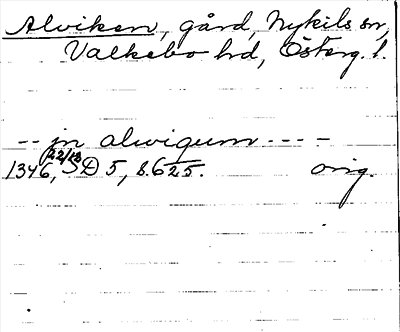 Alviken, gård, Nykils sn,
Valkebo hd, Österg. l.
-- jn alwigum ----
1346, 22/12 SD 5, s. 625. orig.